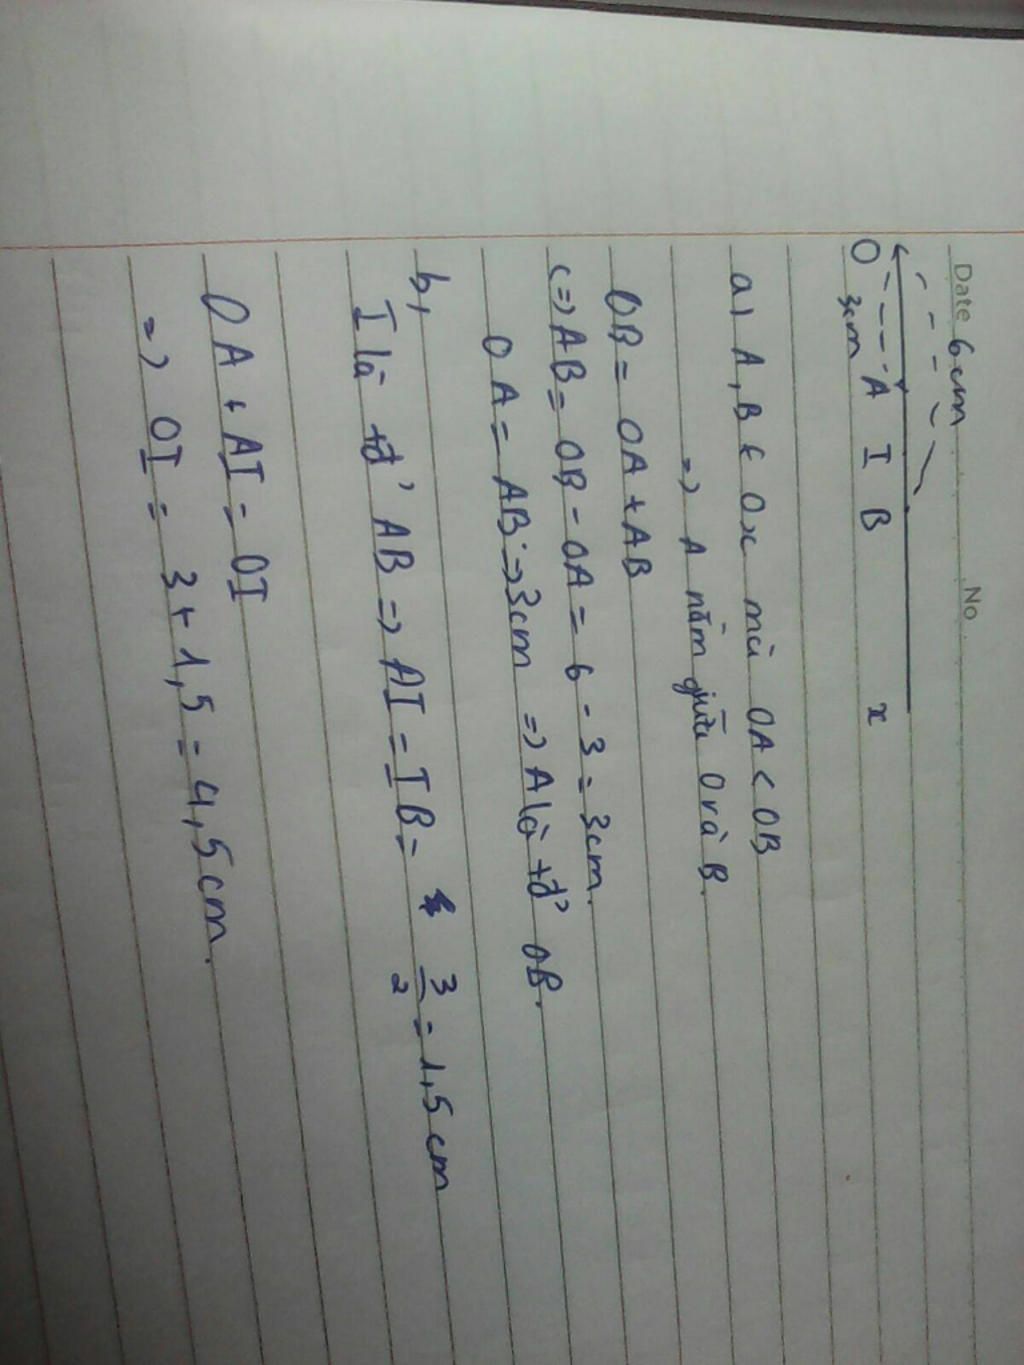 Date 6cm No.
O A I B x
3cm
a) A, B ∈ Ox mà OA < OB
=> A nằm giữa O và B.
OB = OA + AB
(=) AB = OB - OA = 6 - 3 = 3cm.
OA = AB => 3cm => A là tđ' OB.
b,
I là tđ' AB => AI = IB = 3/2 = 1,5 cm
OA + AI = OI
=> OI = 3 + 1,5 = 4,5 cm.